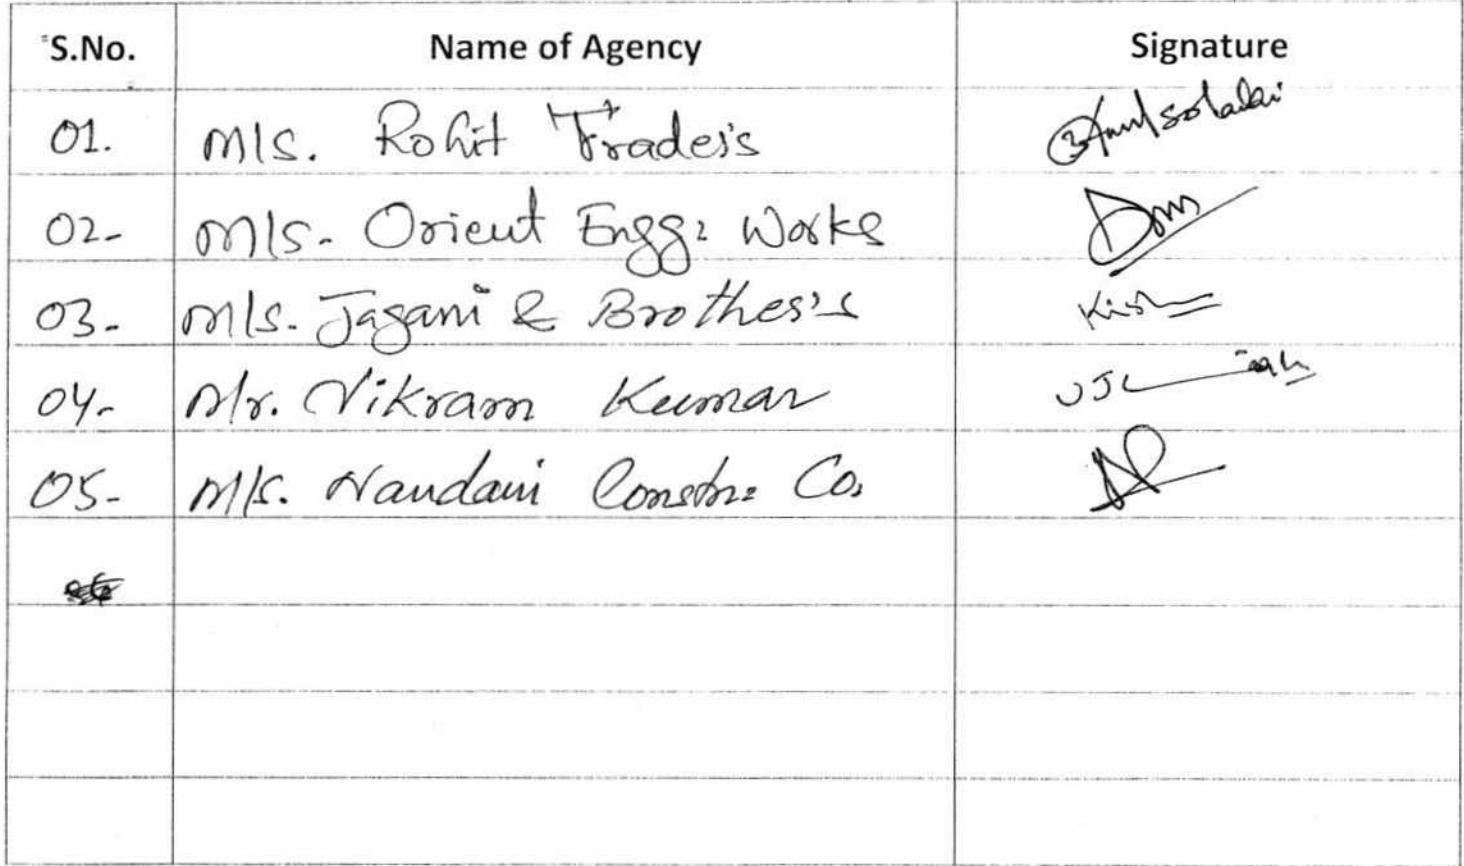 S.No. Name of Agency Signature
01. M/s. Rohit Trader's
02- M/s. Orient Engg: Works
03- M/s. Jagani & Brother's
04- Mr. Vikram Kumar
05- M/s. Nandani Constr: Co.